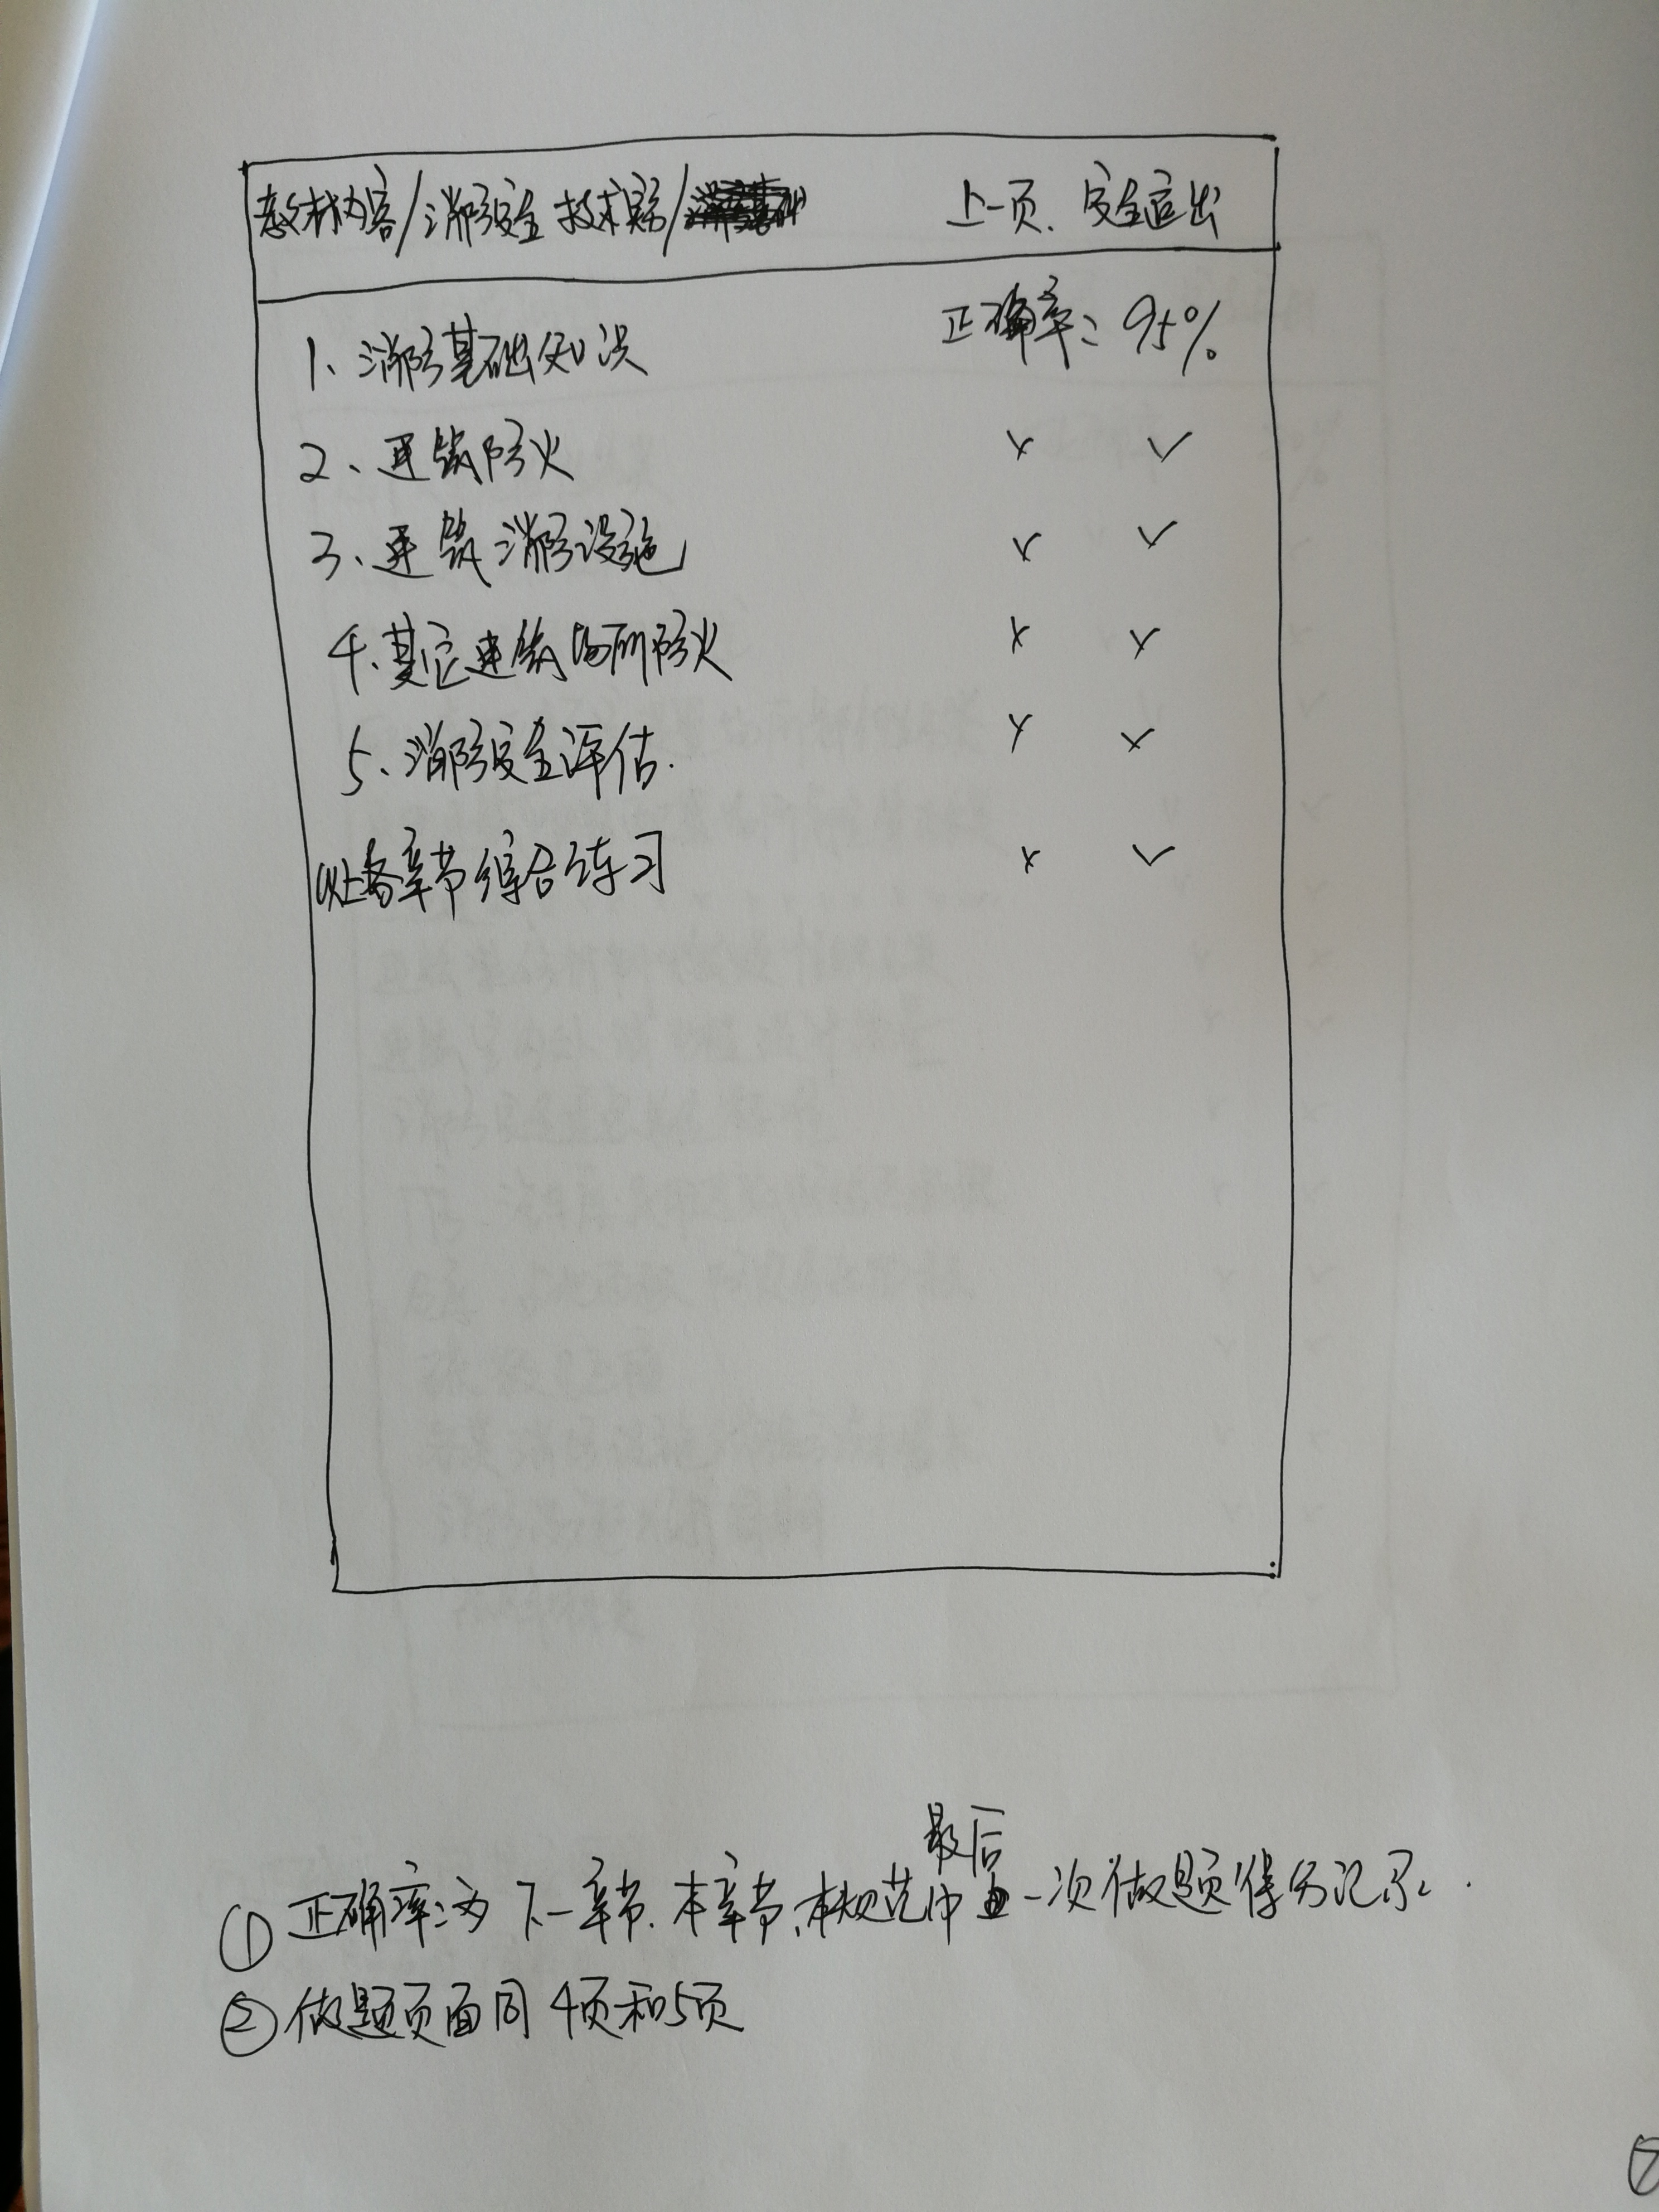 教材内容/消防安全技术实务/ 上一页、安全退出
1、消防基础知识 正确率：95%
2、建筑防火 × ✓
3、建筑消防设施 × ✓
4、其它建筑场所防火 × ×
5、消防安全评估. × ×
以上各章节综合练习 × ✓
最后
①正确率：为下一章节、本章节、本规范中 一次做题得分记录.
②做题页面同4页和5页
⑦